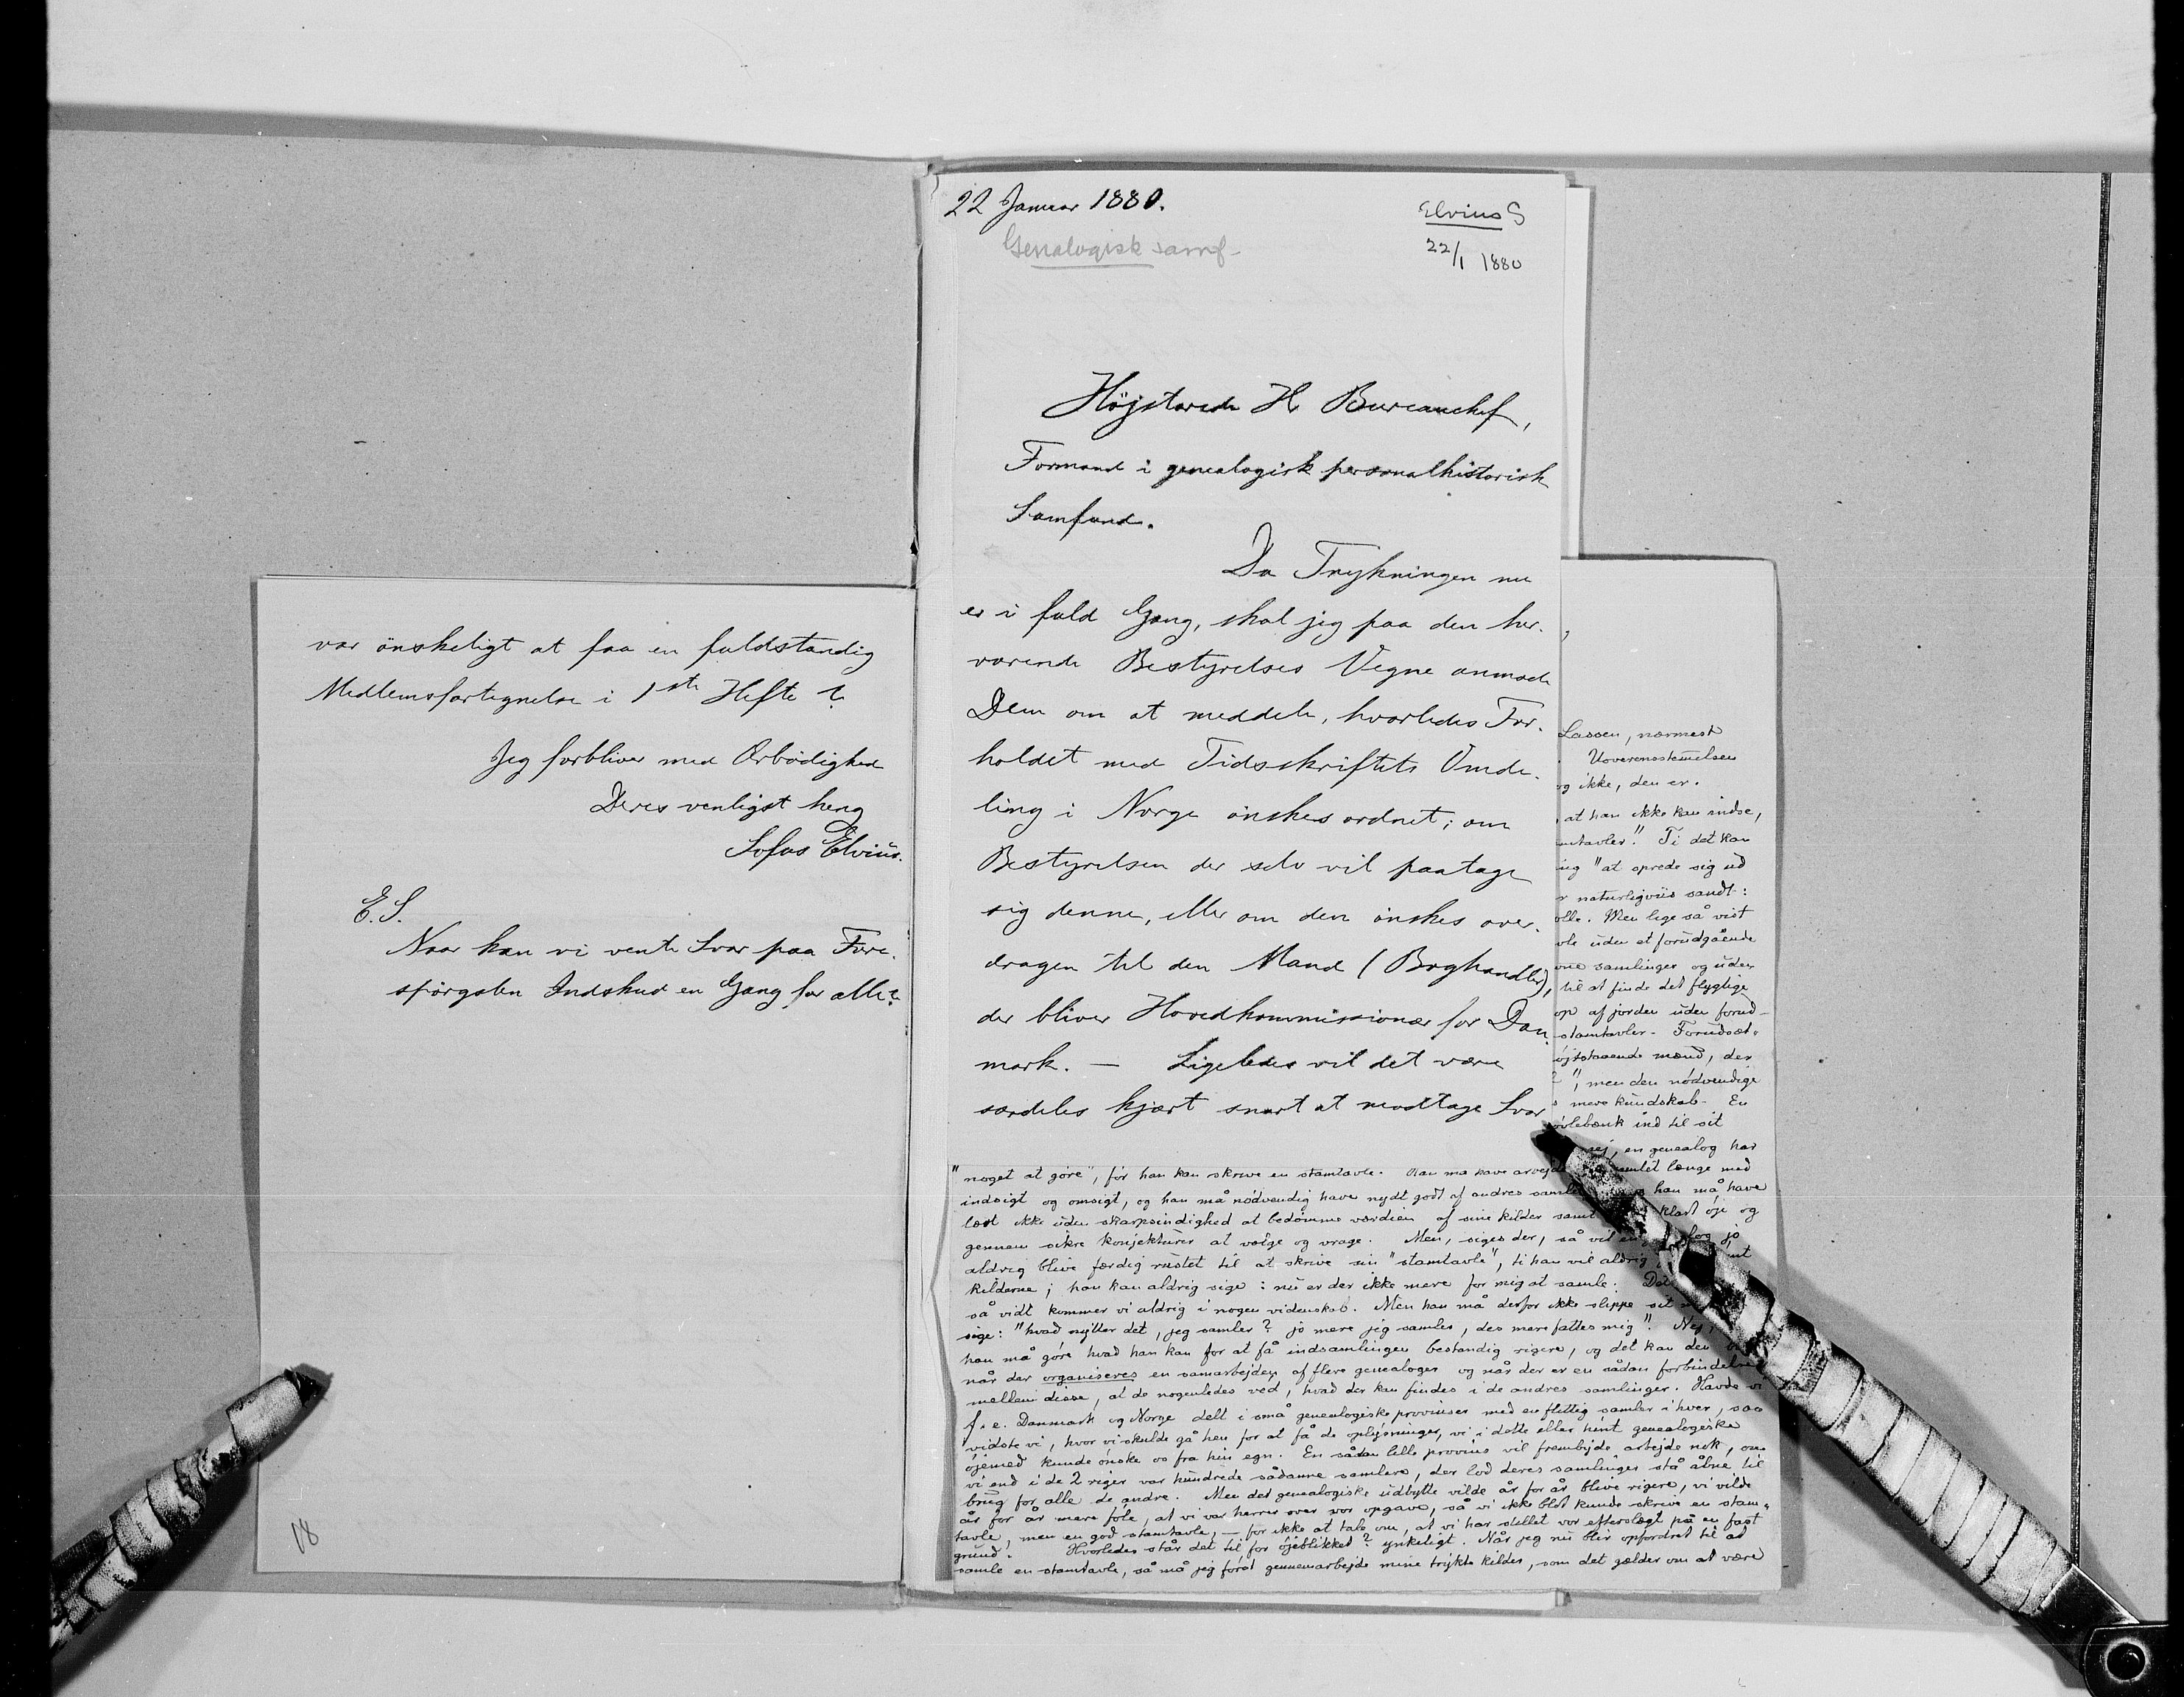 var önskeligt at faa en fuldstændig
Medlemsfortegnelse i 1ste Hefte?
Jeg forbliver med Ærbödighed
Deres venligst heng
Sofus Elvius.
E.S.
Naar kan vi vente Svar paa Fore-
spörgslen Indskud en Gang for alle?
18
22 Januar 1880.
Elvius S
Genalogisk samf-
22/1 1880
Höjstærede Hr Bureauchef,
Formand i genealogisk personalhistorisk
Samfund.
Da Trykningen nu
er i fuld Gang, skal jeg paa den her-
værende Bestyrelses Vegne anmode
Dem om at meddele, hvorledes For-
holdet med Tidsskriftets Omde-
ling i Norge önskes ordnet; om
Bestyrelsen der selv vil paatage
sig denne, eller om den önskes over-
dragen til den Mand (Boghandler),
der bliver Hovedkommissionær for Dan-
mark. — Ligeledes vil det være
særdeles kjært snart at modtage Svar
Lassen, nærmest
Uoverensstemelsen
og ikke, den er.
at han ikke kan indse,
mtavler." Ti det kan
ing "at oprede sig ud
r naturligviis sandt:
olle. Men lige så vist
vle uden et forudgående
vne samlinger og uden
til at finde det flygtige
op af jorden uden forud-
stamtavler. Forudsæt-
öjtstaaende mænd, der
", men den nödvendige
s mere kundskab. En
övlebænk ind til sit
nej, en genealog har
"noget at göre", för han kan skrive en stamtavle. Han må have arvejdet og samlet længe med
indsigt og omsigt, og han må nödvendig have nydt godt af andres saml han må have
lært ikke uden skarpsindighed at bedömme værdien af sine kilder samt klart öje og
gennem sikre konjekturer at vælge og vrage. Men, siges der, så vil en jo
aldrig blive færdig rustet til at skrive sin "stamtavle", ti han vil aldrig
kilderne; han kan aldrig sige: nu er der ikke mere for mig at samle. Det
så vidt kommer vi aldrig i nogen videnskab. Men han må derfor ikke slippe sit
sige: "hvad nytter det, jeg samler? jo mere jeg samler, des mere fattes mig". Nej,
han må göre hvad han kan for at få indsamlingen bestandig rigere, og det kan den
når der organiseres en samarbejden af flere genealoger og når der er en sådan forbindelse
mellem disse, at de nogenledes ved, hvad der kan findes i de andres samlinger. Havde vi
f. e. Danmark og Norge delt i små genealogiske provinser med en flittig samler i hver, saa
vidste vi, hvor vi skulde gå hen for at få de oplysninger, vi i dette eller hint genealogiske
öjemed kunde önske os fra hin egn. En sådan lille provins vil frembyde arbejde nok, om
vi end i de 2 riger var hundrede sådanne samlere, der lod deres samlinger stå åbne til
brug for alle de andre. Men det genealogiske udbytte vilde år for år blive rigere, vi vilde
år for år mere föle, at vi var herrer over vor opgave, så vi ikke blot kunde skrive en stam-
tavle, men en god stamtavle, — for ikke at tale om, at vi har stillet vor efterslægt på en fast
grund. Hvorledes står det til for öjeblikket? ynkeligt. Når jeg nu blir opfordret til at
samle en stamtavle, så må jeg först gennemarbejde mine trykte kilder, som det gælder om at være